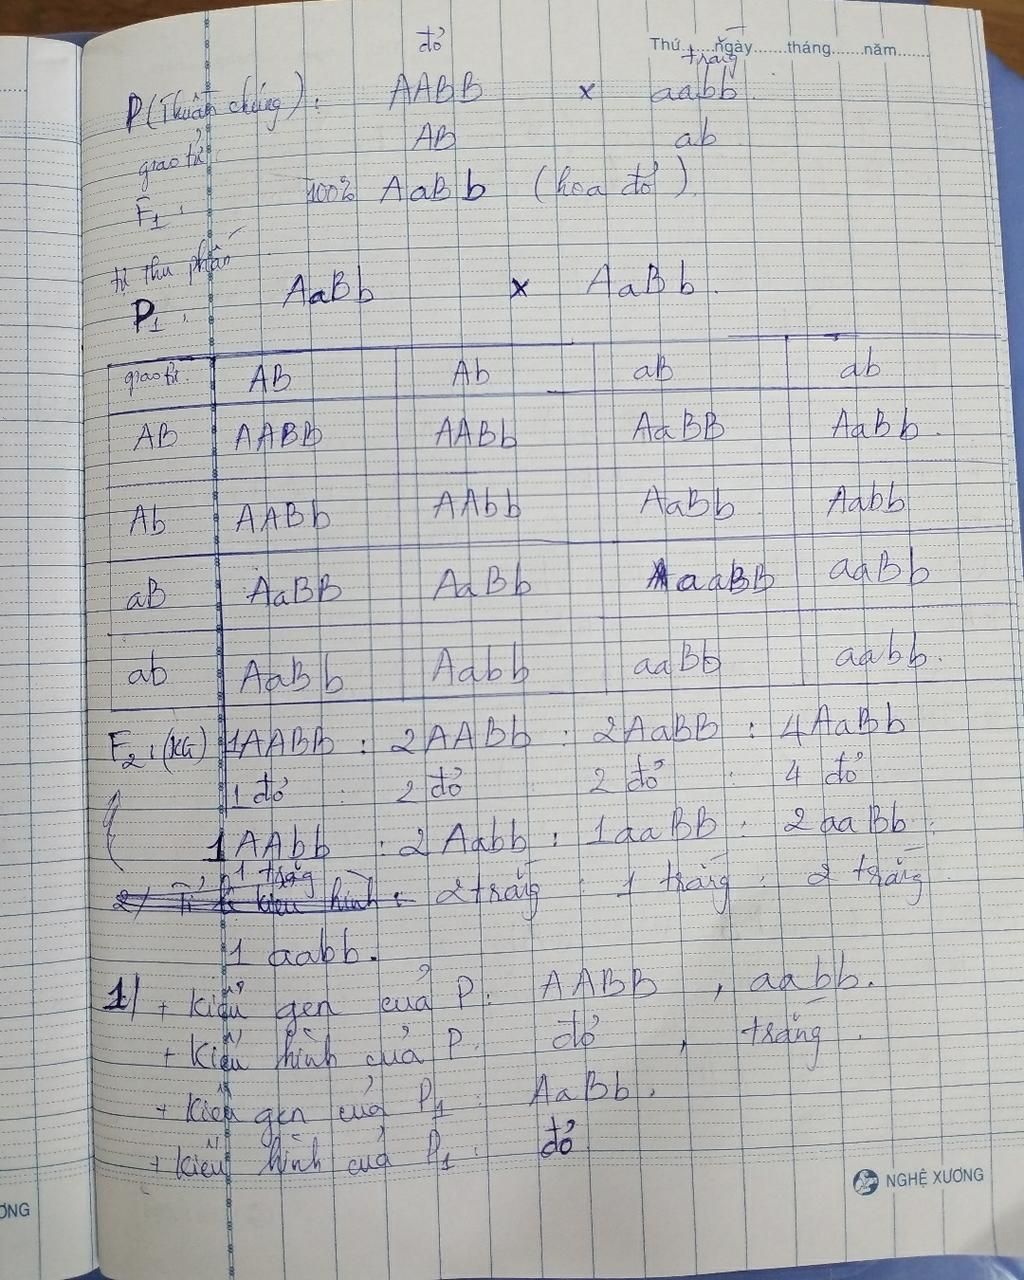 Thứ......ngày.......tháng......năm.......
đỏ trắng
P (Thuần chủng): AABB x aabb
giao tử AB ab
F1: 100% AaBb (hoa đỏ)
tự thụ phấn
P1: AaBb x AaBb.
giao tử. AB Ab aB ab
AB AABB AABb AaBB AaBb.
Ab AABb AAbb AaBb Aabb
aB AaBB AaBb aaBB aaBb
ab AaBb Aabb aaBb aabb.
F2: (KG) 1AABB : 2AABb : 2AaBB : 4AaBb
1 đỏ : 2 đỏ : 2 đỏ : 4 đỏ
1AAbb : 2Aabb : 1aaBB : 2aaBb :
1 trắng : 2 trắng : 1 trắng : 2 trắng
2/ Tỉ lệ kiểu hình :
1 aabb.
1/ + Kiểu gen của P: AABB , aabb.
+ Kiểu hình của P: đỏ , trắng.
+ Kiểu gen của P1: AaBb.
+ Kiểu hình của P1: đỏ
NGHỆ XƯƠNG
ƠNG